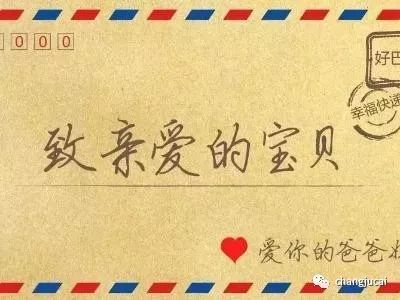 0000
好巴
幸福快递
致亲爱的宝贝
爱你的爸爸
changjucai